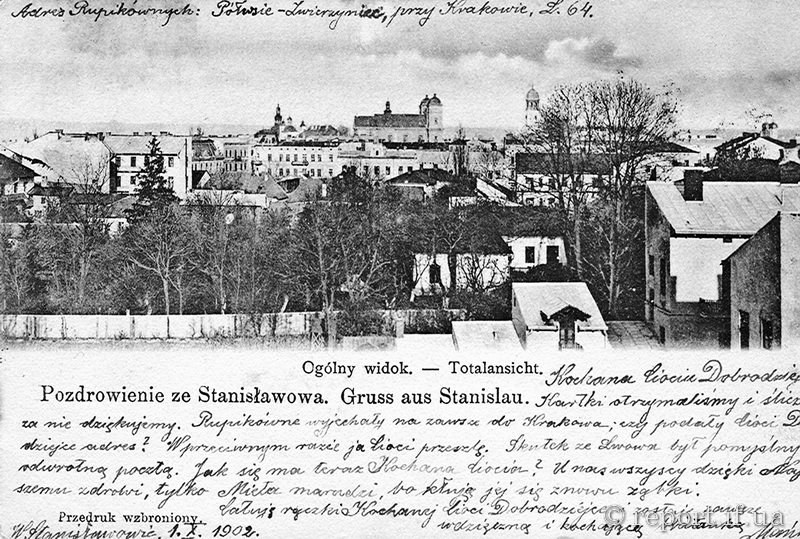 Adres Rupikównych: Półwsie-Zwierzyniec, przy Krakowie, L. 64.
Ogólny widok. — Totalansicht.
Pozdrowienie ze Stanisławowa. Gruss aus Stanislau.
Kochana Ciociu Dobrodziej
Kartki otrzymaliśmy i ślicz
za nie dziękujemy. Rupikówne wyjechały na zawsze do Krakowa; czy podały Cioci D
dziejce adres? W przeciwnym razie ja Cioci przeszlę. Skutek ze Lwowa był pomyślny
odwrotną pocztą. Jak się ma teraz Kochana Ciocia? U nas wszyscy dzięki Naj
szemu zdrowi, tylko Miela marudzi, bo kłują jej się znowu ząbki.
Całują rączki Kochanej Cioci Dobrodziejce i zostaję zawsze
wdzięczną i kochającą
Przedruk wzbroniony.
W Stanisławowie, 1. X. 1902.
© report.if.ua